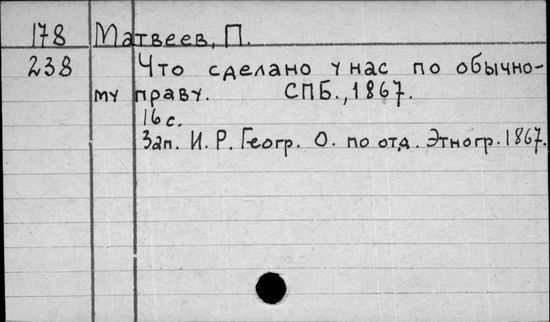 178 Матвеев, П.
238 Что сделано у нас по обычно-
му праву. СПБ., 1867.
16 с.
Зап. И. Р. Геогр. О. по отд. Этногр. 1867.